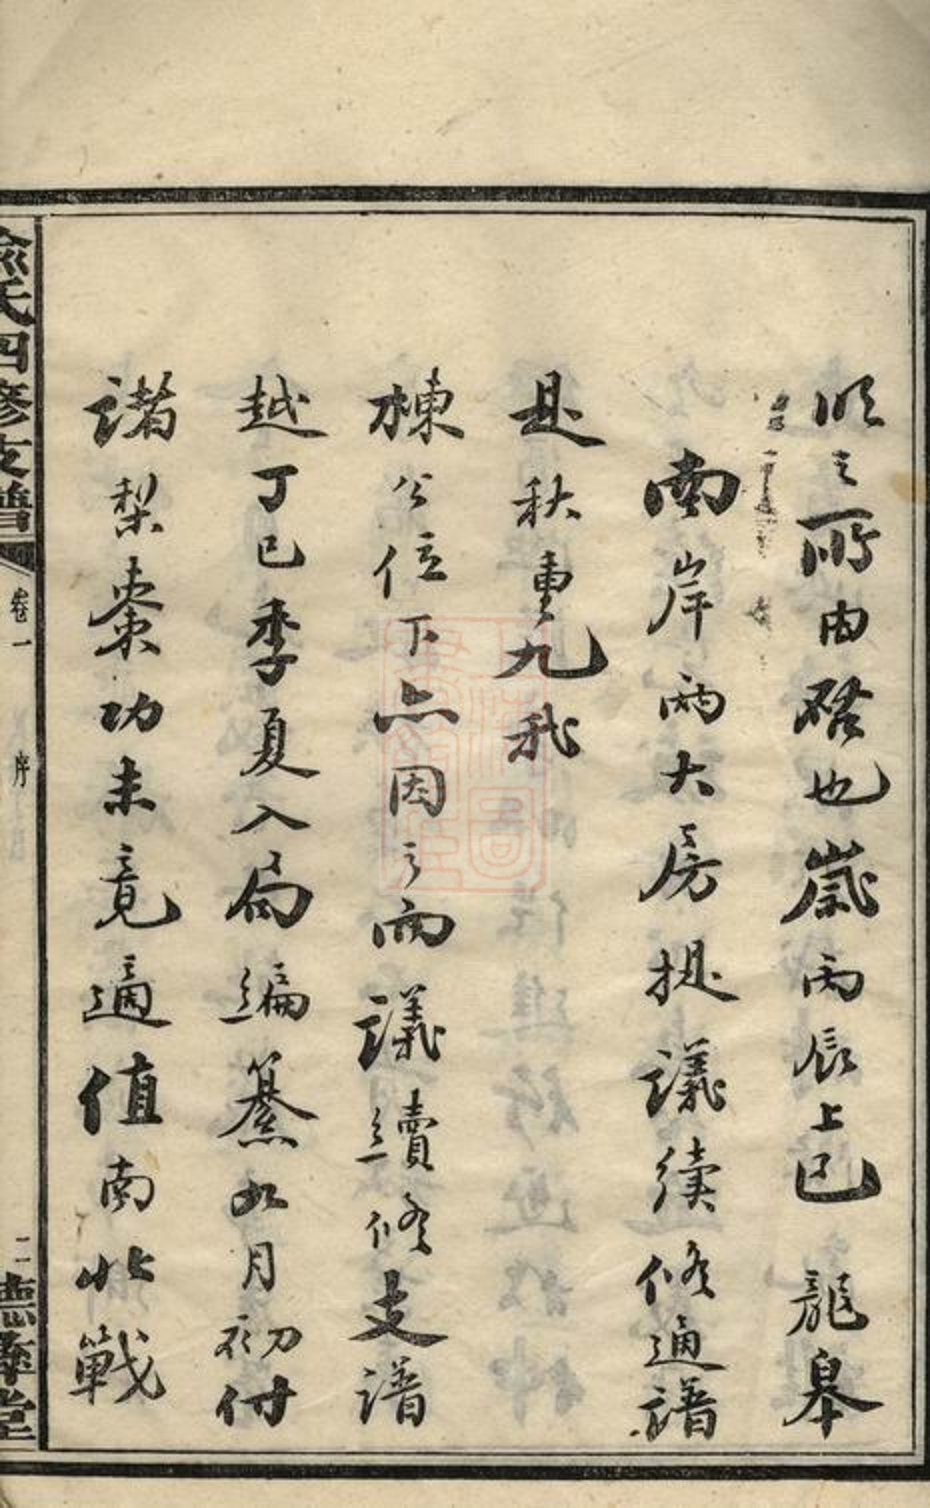 順之所由啓也歲丙辰上巳龍皋
南岸兩大房提議續修通譜
是秋重九我
棟公位下亦因之而議續修支譜
越丁巳季夏入局編纂如月初付
諸梨棗功未竟適值南北戰
俞氏四修支譜 卷一 序 二 德馨堂